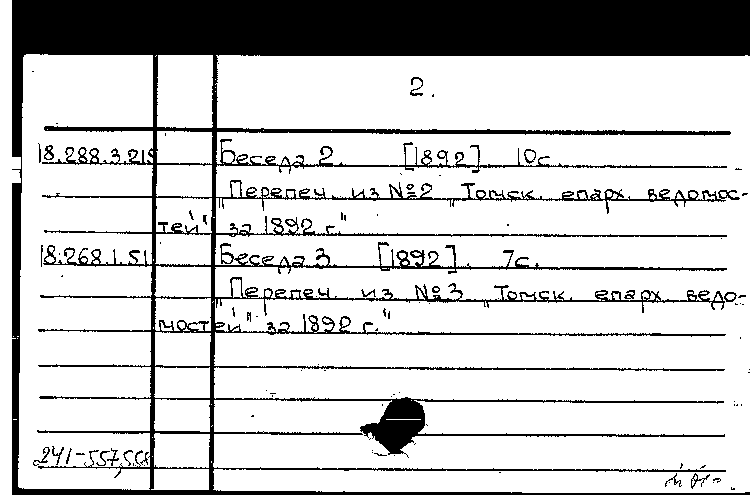 2.
18.288.3.215 Беседа 2. [1892]. 10с.
"Перепеч. из №2 "Томск. епарх. ведомос-
тей" за 1892 г."
18.268.1.51 Беседа 3. [1892]. 7с.
"Перепеч. из №3 "Томск. епарх. ведо-
мостей" за 1892 г."
241-557,558